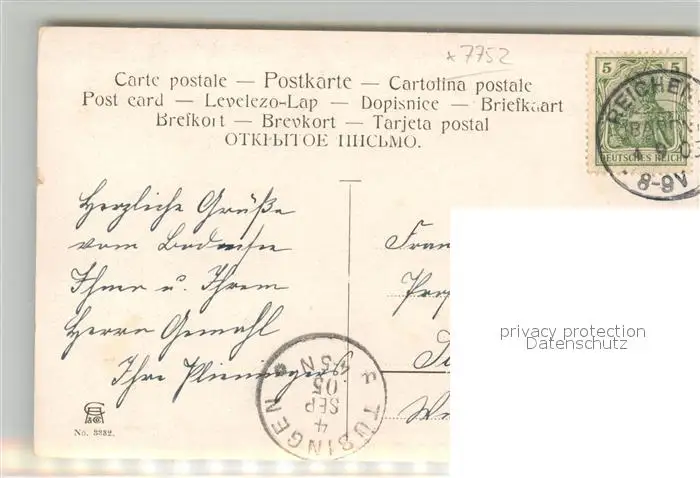 * 7752
Carte postale — Postkarte — Cartolina postale
Post card — Levelezo-Lap — Dopisnice — Briefkaart
Brefkort — Brevkort — Tarjeta postal
ОТКРЫТОЕ ПИСЬМО.
5 5
DEUTSCHES REICH
REICHEN
8-9V
Herzliche Grüße
vom Bodensee
Ihnen u. Ihrem
Herrn Gemahl
Ihre Plieningers
Frau
Prof
Tü
TÜBINGEN
4
SEP
05
N
privacy protection
Datenschutz
No. 3332.